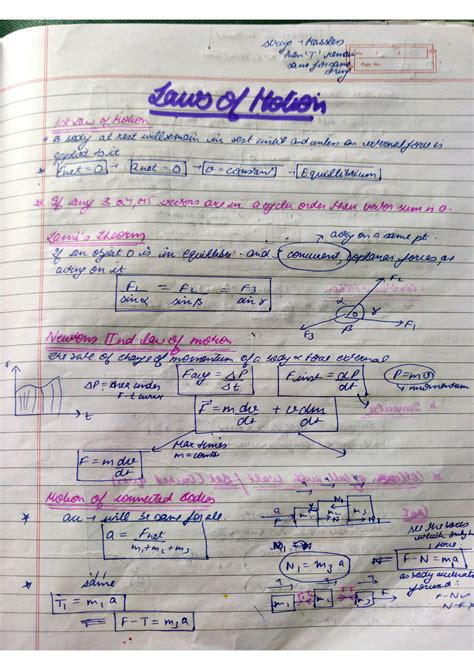 strings → Massless
then 'T' remain
same for same
string
Page No.
Laws of Motion
1st Law of Motion
* A body at rest will remain in rest until and unless an external force is
applied to it
Fnet = 0 → anet = 0 → v = constant → Equillibrium
* If any 3 or 4 or 5 vectors are in a cyclic order then vector sum is 0.
Lami's Theorem
→ acting on a same pt.
If an object O is in equilibri and concurrent, coplanar forces, are
acting on it
F1/sin α = F2/sin β = F3/sin γ
F2
α
γ
O
F3
β
F1
Newtons IInd Law of motion
The rate of change of momentum of a body α Force external
F
ΔP = Area under
F-t curve
t
Favg = ΔP/Δt
Finst = dP/dt
P = mv
→ momentum
F = m dv/dt + v dm/dt
Max times
m = const
F = m dv/dt
Motion of connected Bodies
* acc → will be same for all
a = Fnet/m1+m2+m3
a
F
N1
N1 = m3 a
see the block
which only
1 force
N
F - N = ma
as body accelerate
forward
same
* T1 = m1 a
F - T = m3 a
a
m1
m2
m3
F